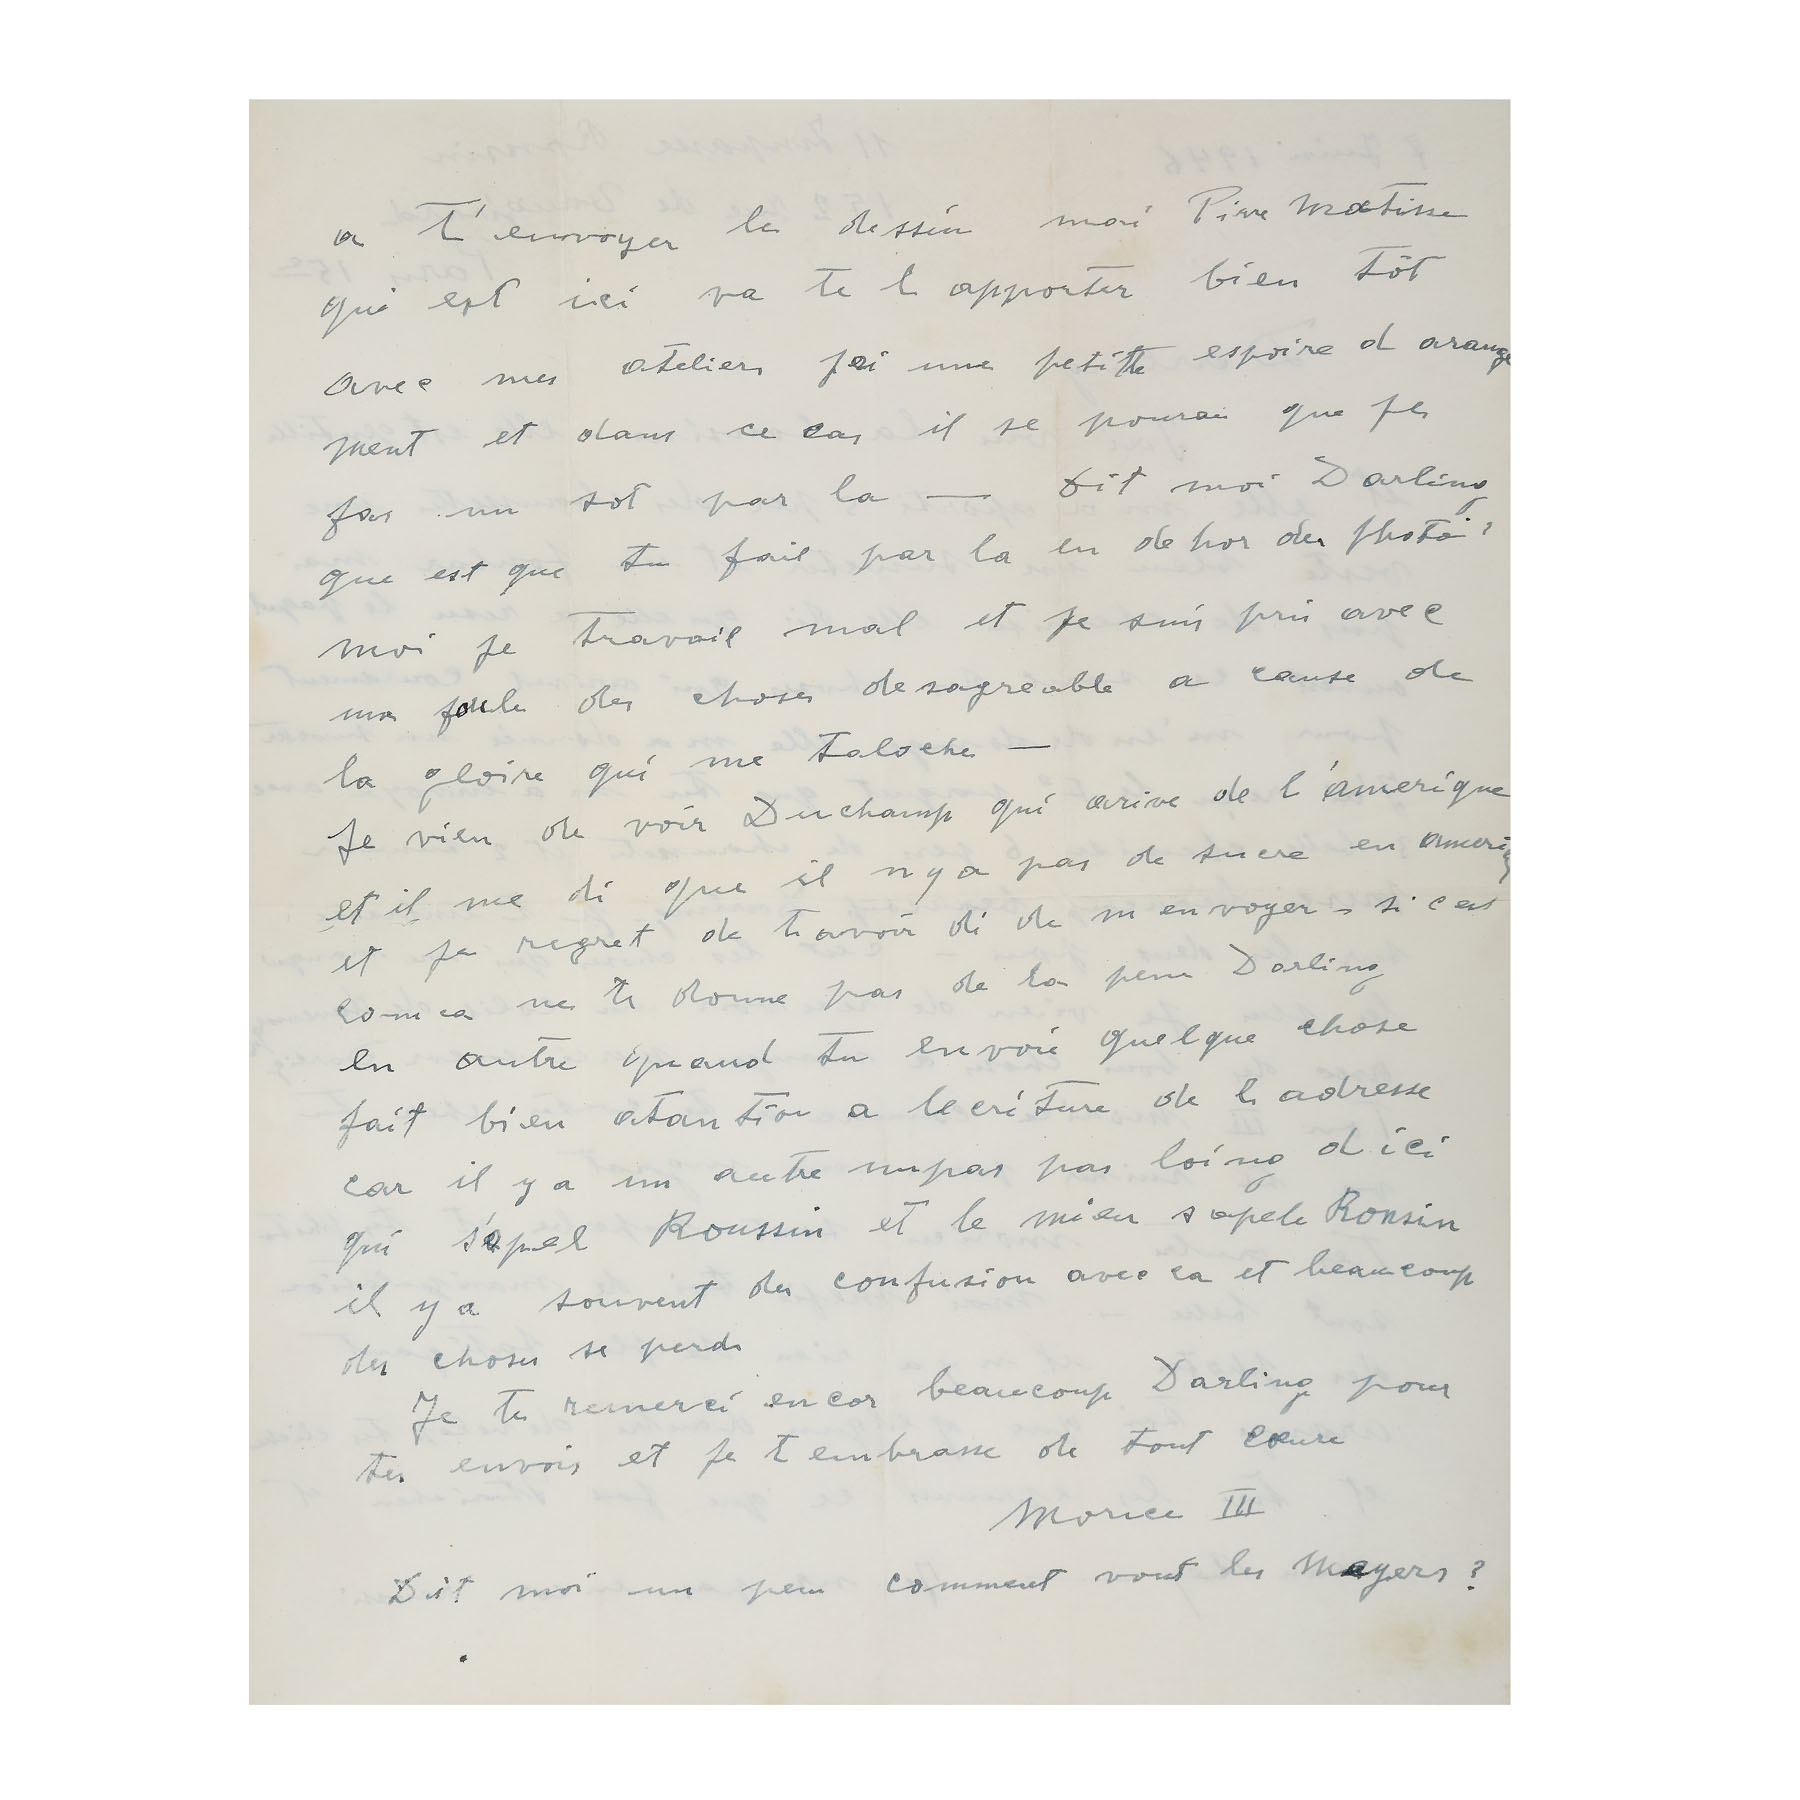 a t'envoyer le dessin mai Pierre Matisse
qui est ici va te l apporter bien tôt
avec mes ateliers jai une petitte espoire d arange
ment et dans ce cas il se pourai que je
fas un sot par la — Dit moi Darling
que est que tu fail par la en dehor des photo?
moi je travail mal et je suis pris avec
une foule des choses desagreable a cause de
la gloire qui me taloche —
Je vien de voir Duchamp qui arive de l'amerique
et il me di que il n y a pas de sucre en ameriq
et je regret de t avoir di de m envoyer - si c est
com ca ne te donne pas de la peine Darling
en autre quand tu envoie quelque chose
fait bien atantion a lecriture de l adresse
car il y a un autre impas pas loing d ici
qui s'apel Roussin et le mien s apele Ronsin
il y a souvent des confusion avec ca et beaucoup
des choses se perds
Je te remerci encor beaucoup Darling pour
tes envois et je t embrasse de tout coeure
Morice III
Dit moi un peu comment vont les Mayers?